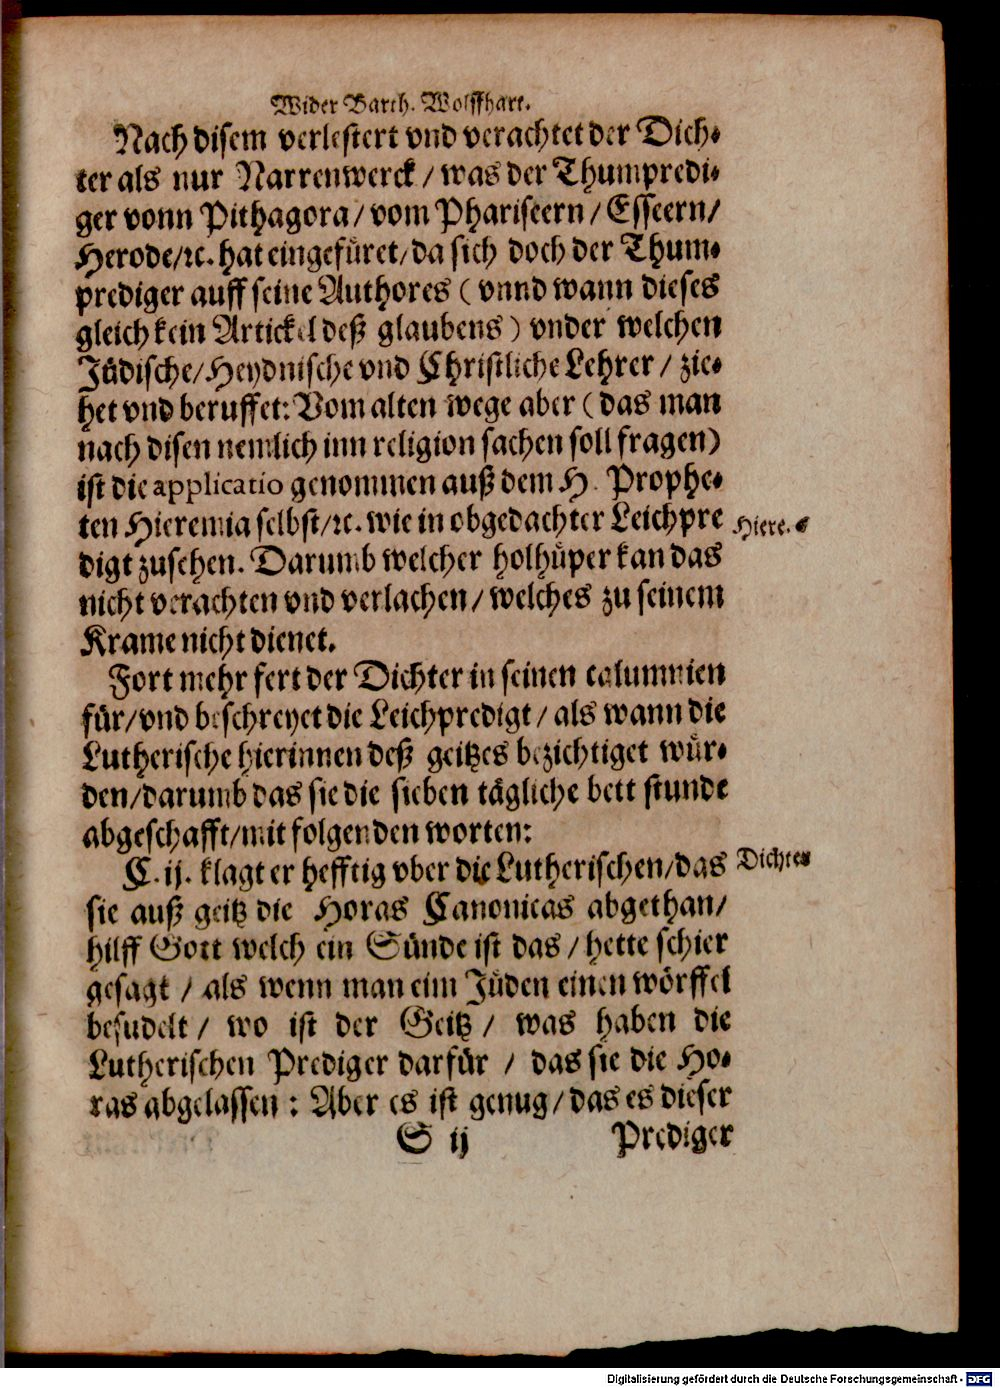 Wider Barth. Wolffhart.
Nach disem verlestert vnd verachtet der Dich-
ter als nur Narrenwerck / was der Thumpredi-
ger vonn Pithagora / vom Phariseern / Esseern /
Herode / ꝛc. hat eingefüret / da sich doch der Thum-
prediger auff seine Authores ( vnnd wann dieses
gleich kein Artickel deß glaubens ) vnder welchen
Jüdische / Heydnische vnd Christliche Lehrer / zie-
het vnd beruffet: Vom alten wege aber ( das man
nach disen nemlich inn religion sachen soll fragen)
ist die applicatio genommen auß dem H. Prophe-
ten Hieremia selbst / ꝛc. wie in obgedachter Leichpre
Hiere. 6
digt zusehen. Darumb welcher holhüper kan das
nicht verachten vnd verlachen / welches zu seinem
Krame nicht dienet.
Fort mehr fert der Dichter in seinen calumnien
für / vnd beschreyet die Leichpredigt / als wann die
Lutherische hierinnen deß geitzes bezichtiget wür-
den / darumb das sie die sieben tägliche bett stunde
abgeschafft / mit folgenden worten:
C. ij. klagt er hefftig vber die Lutherischen / das
Dichter
sie auß geitz die Horas Canonicas abgethan /
hilff Gott welch ein Sünde ist das / hette schier
gesagt / als wenn man eim Jüden einen wörffel
besudelt / wo ist der Geitz / was haben die
Lutherischen Prediger darfür / das sie die Ho-
ras abgelassen : Aber es ist genug / das es dieser
S ij Prediger
Digitalisierung gefördert durch die Deutsche Forschungsgemeinschaft - DFG